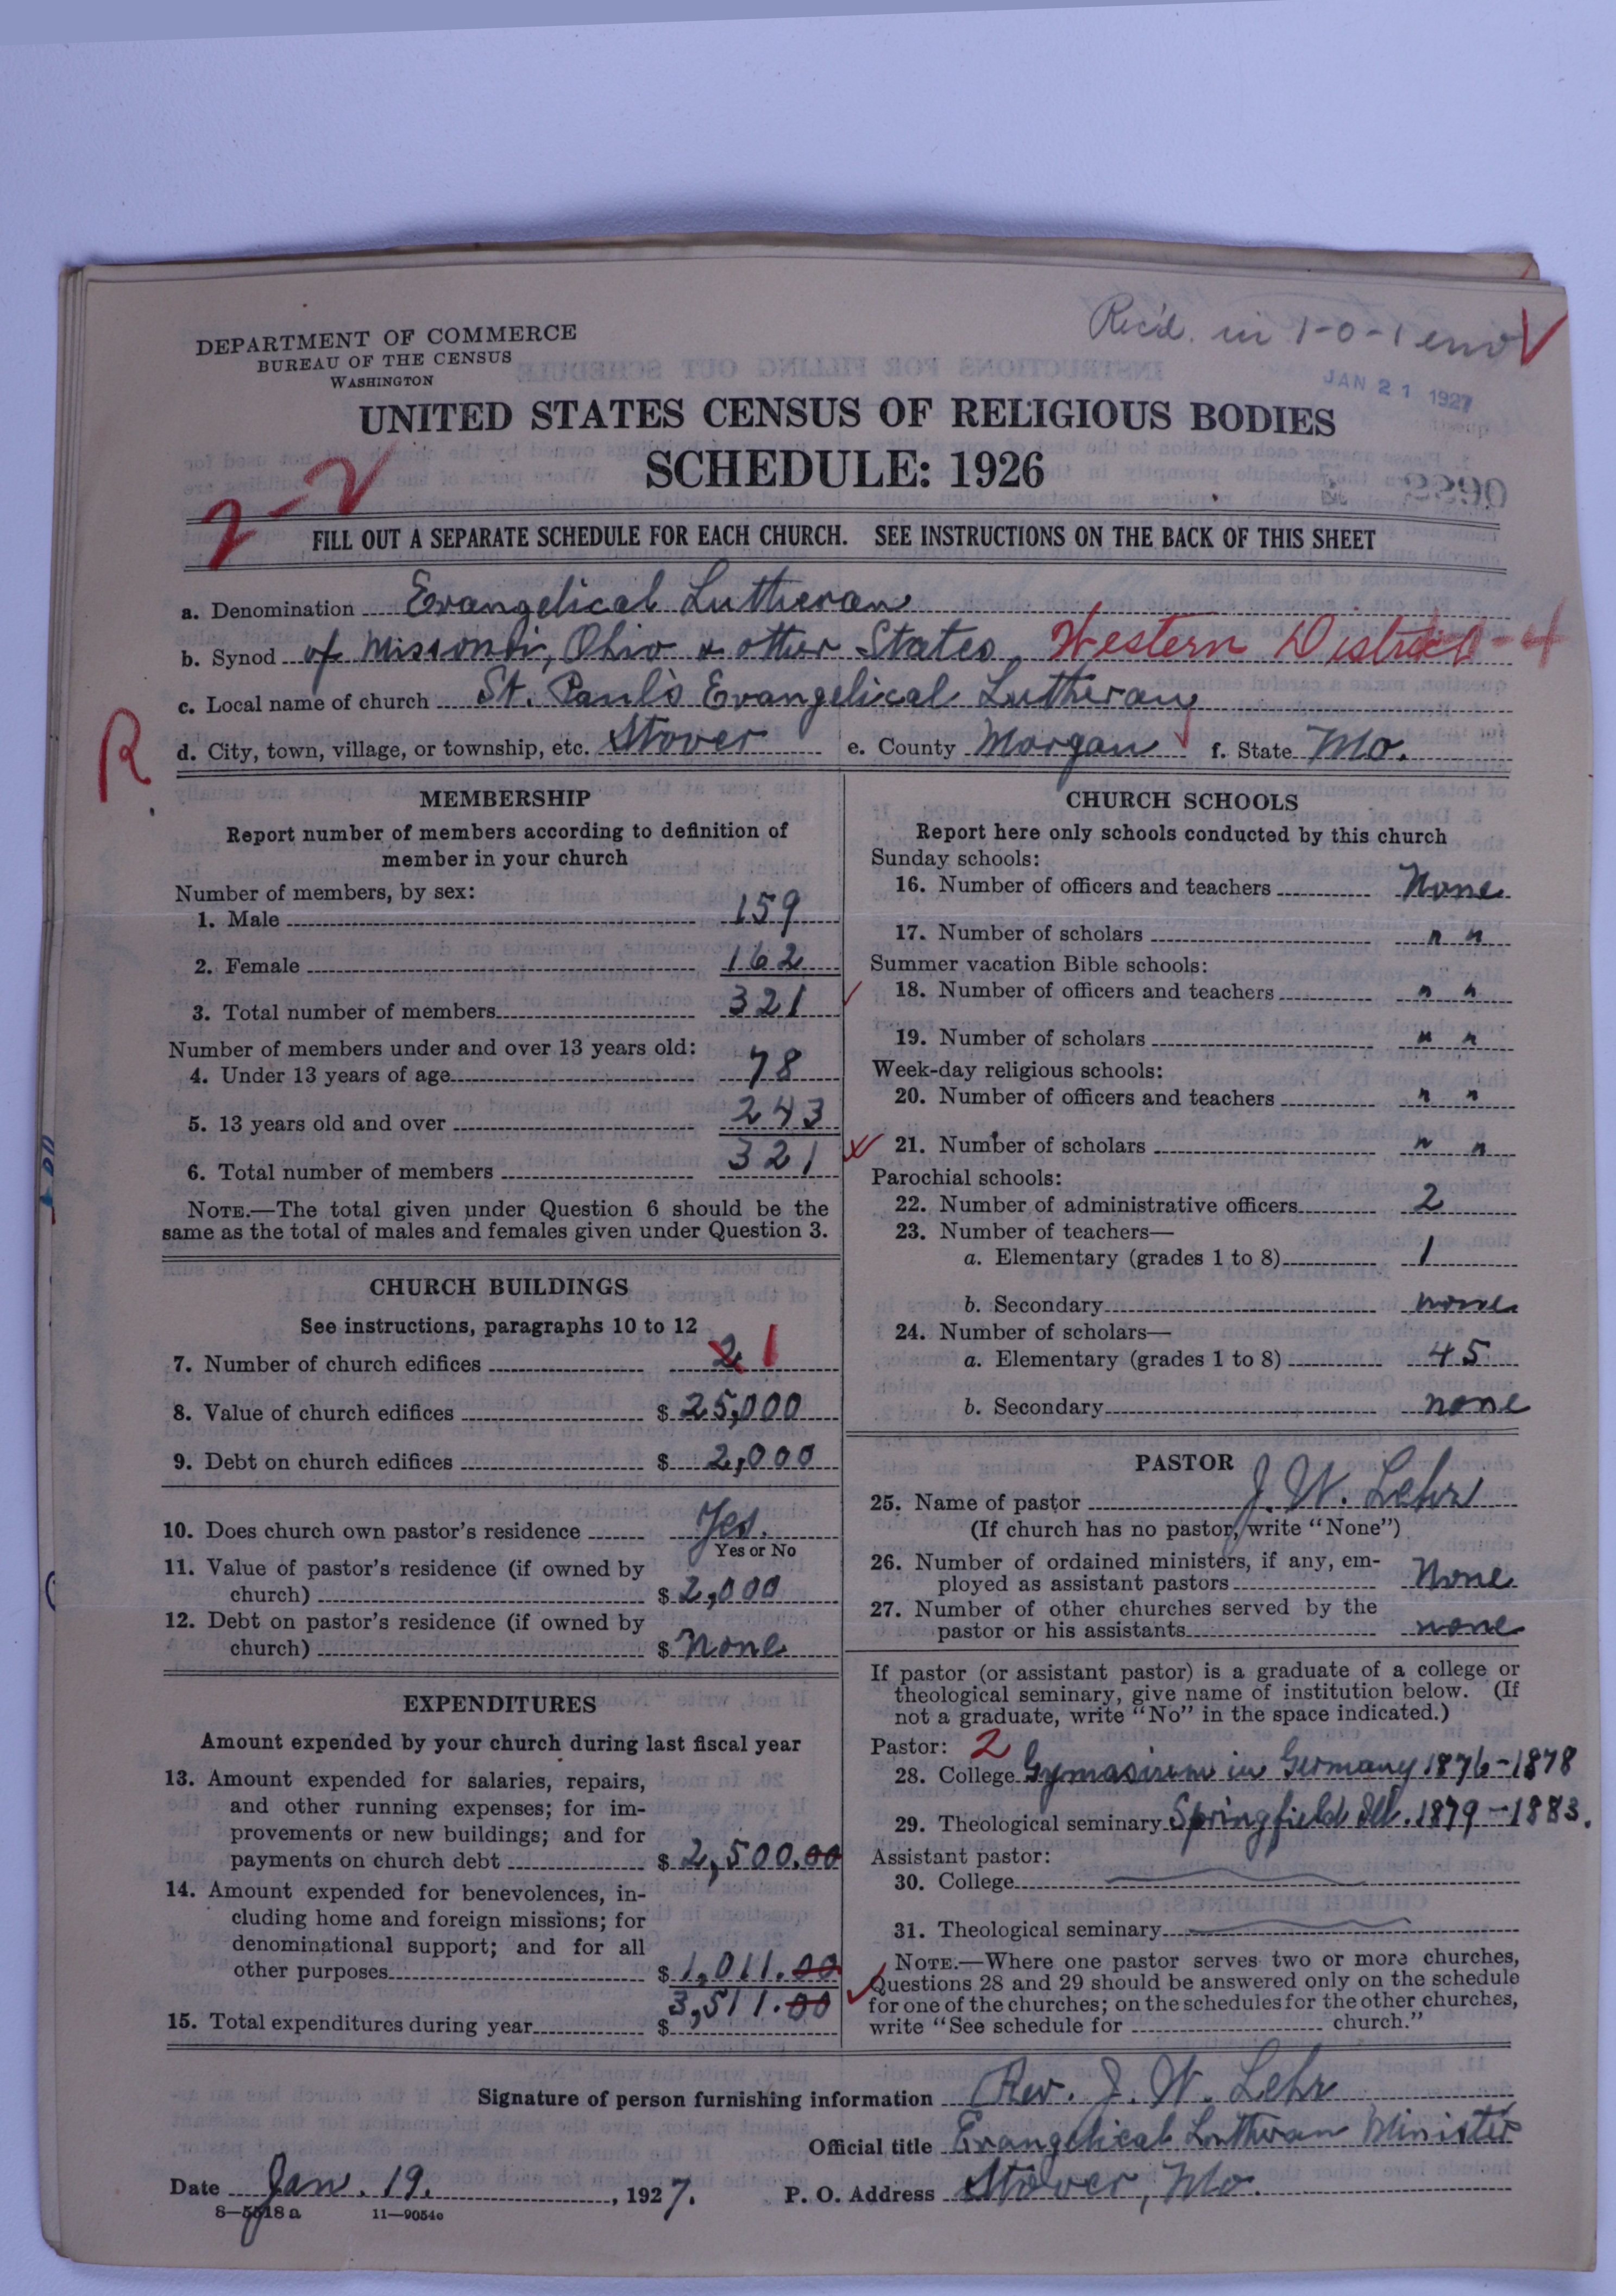 Rec'd. in 1-0-1 env V
DEPARTMENT OF COMMERCE
BUREAU OF THE CENSUS
WASHINGTON
JAN 21 1927
UNITED STATES CENSUS OF RELIGIOUS BODIES
SCHEDULE: 1926
2-2
2290
FILL OUT A SEPARATE SCHEDULE FOR EACH CHURCH. SEE INSTRUCTIONS ON THE BACK OF THIS SHEET
a. Denomination Evangelical Lutheran
b. Synod of Missouri, Ohio & other States, Western District-4
c. Local name of church St. Paul's Evangelical Lutheran
R
d. City, town, village, or township, etc. Stover e. County Morgan f. State Mo.
MEMBERSHIP
Report number of members according to definition of
member in your church
Number of members, by sex:
1. Male 159
2. Female 162
3. Total number of members 321
Number of members under and over 13 years old:
4. Under 13 years of age 78
5. 13 years old and over 243
6. Total number of members 321
NOTE.—The total given under Question 6 should be the
same as the total of males and females given under Question 3.
CHURCH BUILDINGS
See instructions, paragraphs 10 to 12
7. Number of church edifices 2 1
8. Value of church edifices $ 25,000
9. Debt on church edifices $ 2,000
10. Does church own pastor's residence Yes.
Yes or No
11. Value of pastor's residence (if owned by
church) $ 2,000
12. Debt on pastor's residence (if owned by
church) $ None
EXPENDITURES
Amount expended by your church during last fiscal year
13. Amount expended for salaries, repairs,
and other running expenses; for im-
provements or new buildings; and for
payments on church debt $ 2,500.00
14. Amount expended for benevolences, in-
cluding home and foreign missions; for
denominational support; and for all
other purposes $ 1,011.00
15. Total expenditures during year $ 3,511.00
CHURCH SCHOOLS
Report here only schools conducted by this church
Sunday schools:
16. Number of officers and teachers None
17. Number of scholars " "
Summer vacation Bible schools:
18. Number of officers and teachers " "
19. Number of scholars " "
Week-day religious schools:
20. Number of officers and teachers " "
21. Number of scholars " "
Parochial schools:
22. Number of administrative officers 2
23. Number of teachers—
a. Elementary (grades 1 to 8) 1
b. Secondary none
24. Number of scholars—
a. Elementary (grades 1 to 8) 45
b. Secondary none
PASTOR
25. Name of pastor J. W. Lehr
(If church has no pastor, write "None")
26. Number of ordained ministers, if any, em-
ployed as assistant pastors None
27. Number of other churches served by the
pastor or his assistants none
If pastor (or assistant pastor) is a graduate of a college or
theological seminary, give name of institution below. (If
not a graduate, write "No" in the space indicated.)
Pastor: 2
28. College Gymasium in Germany 1876-1878
29. Theological seminary Springfield Ill. 1879-1883.
Assistant pastor:
30. College
31. Theological seminary
NOTE.—Where one pastor serves two or more churches,
Questions 28 and 29 should be answered only on the schedule
for one of the churches; on the schedules for the other churches,
write "See schedule for church."
Signature of person furnishing information Rev. J. W. Lehr
Official title Evangelical Lutheran Minister
Date Jan. 19. , 1927. P. O. Address Stover, Mo.
8—5518a 11—9054c